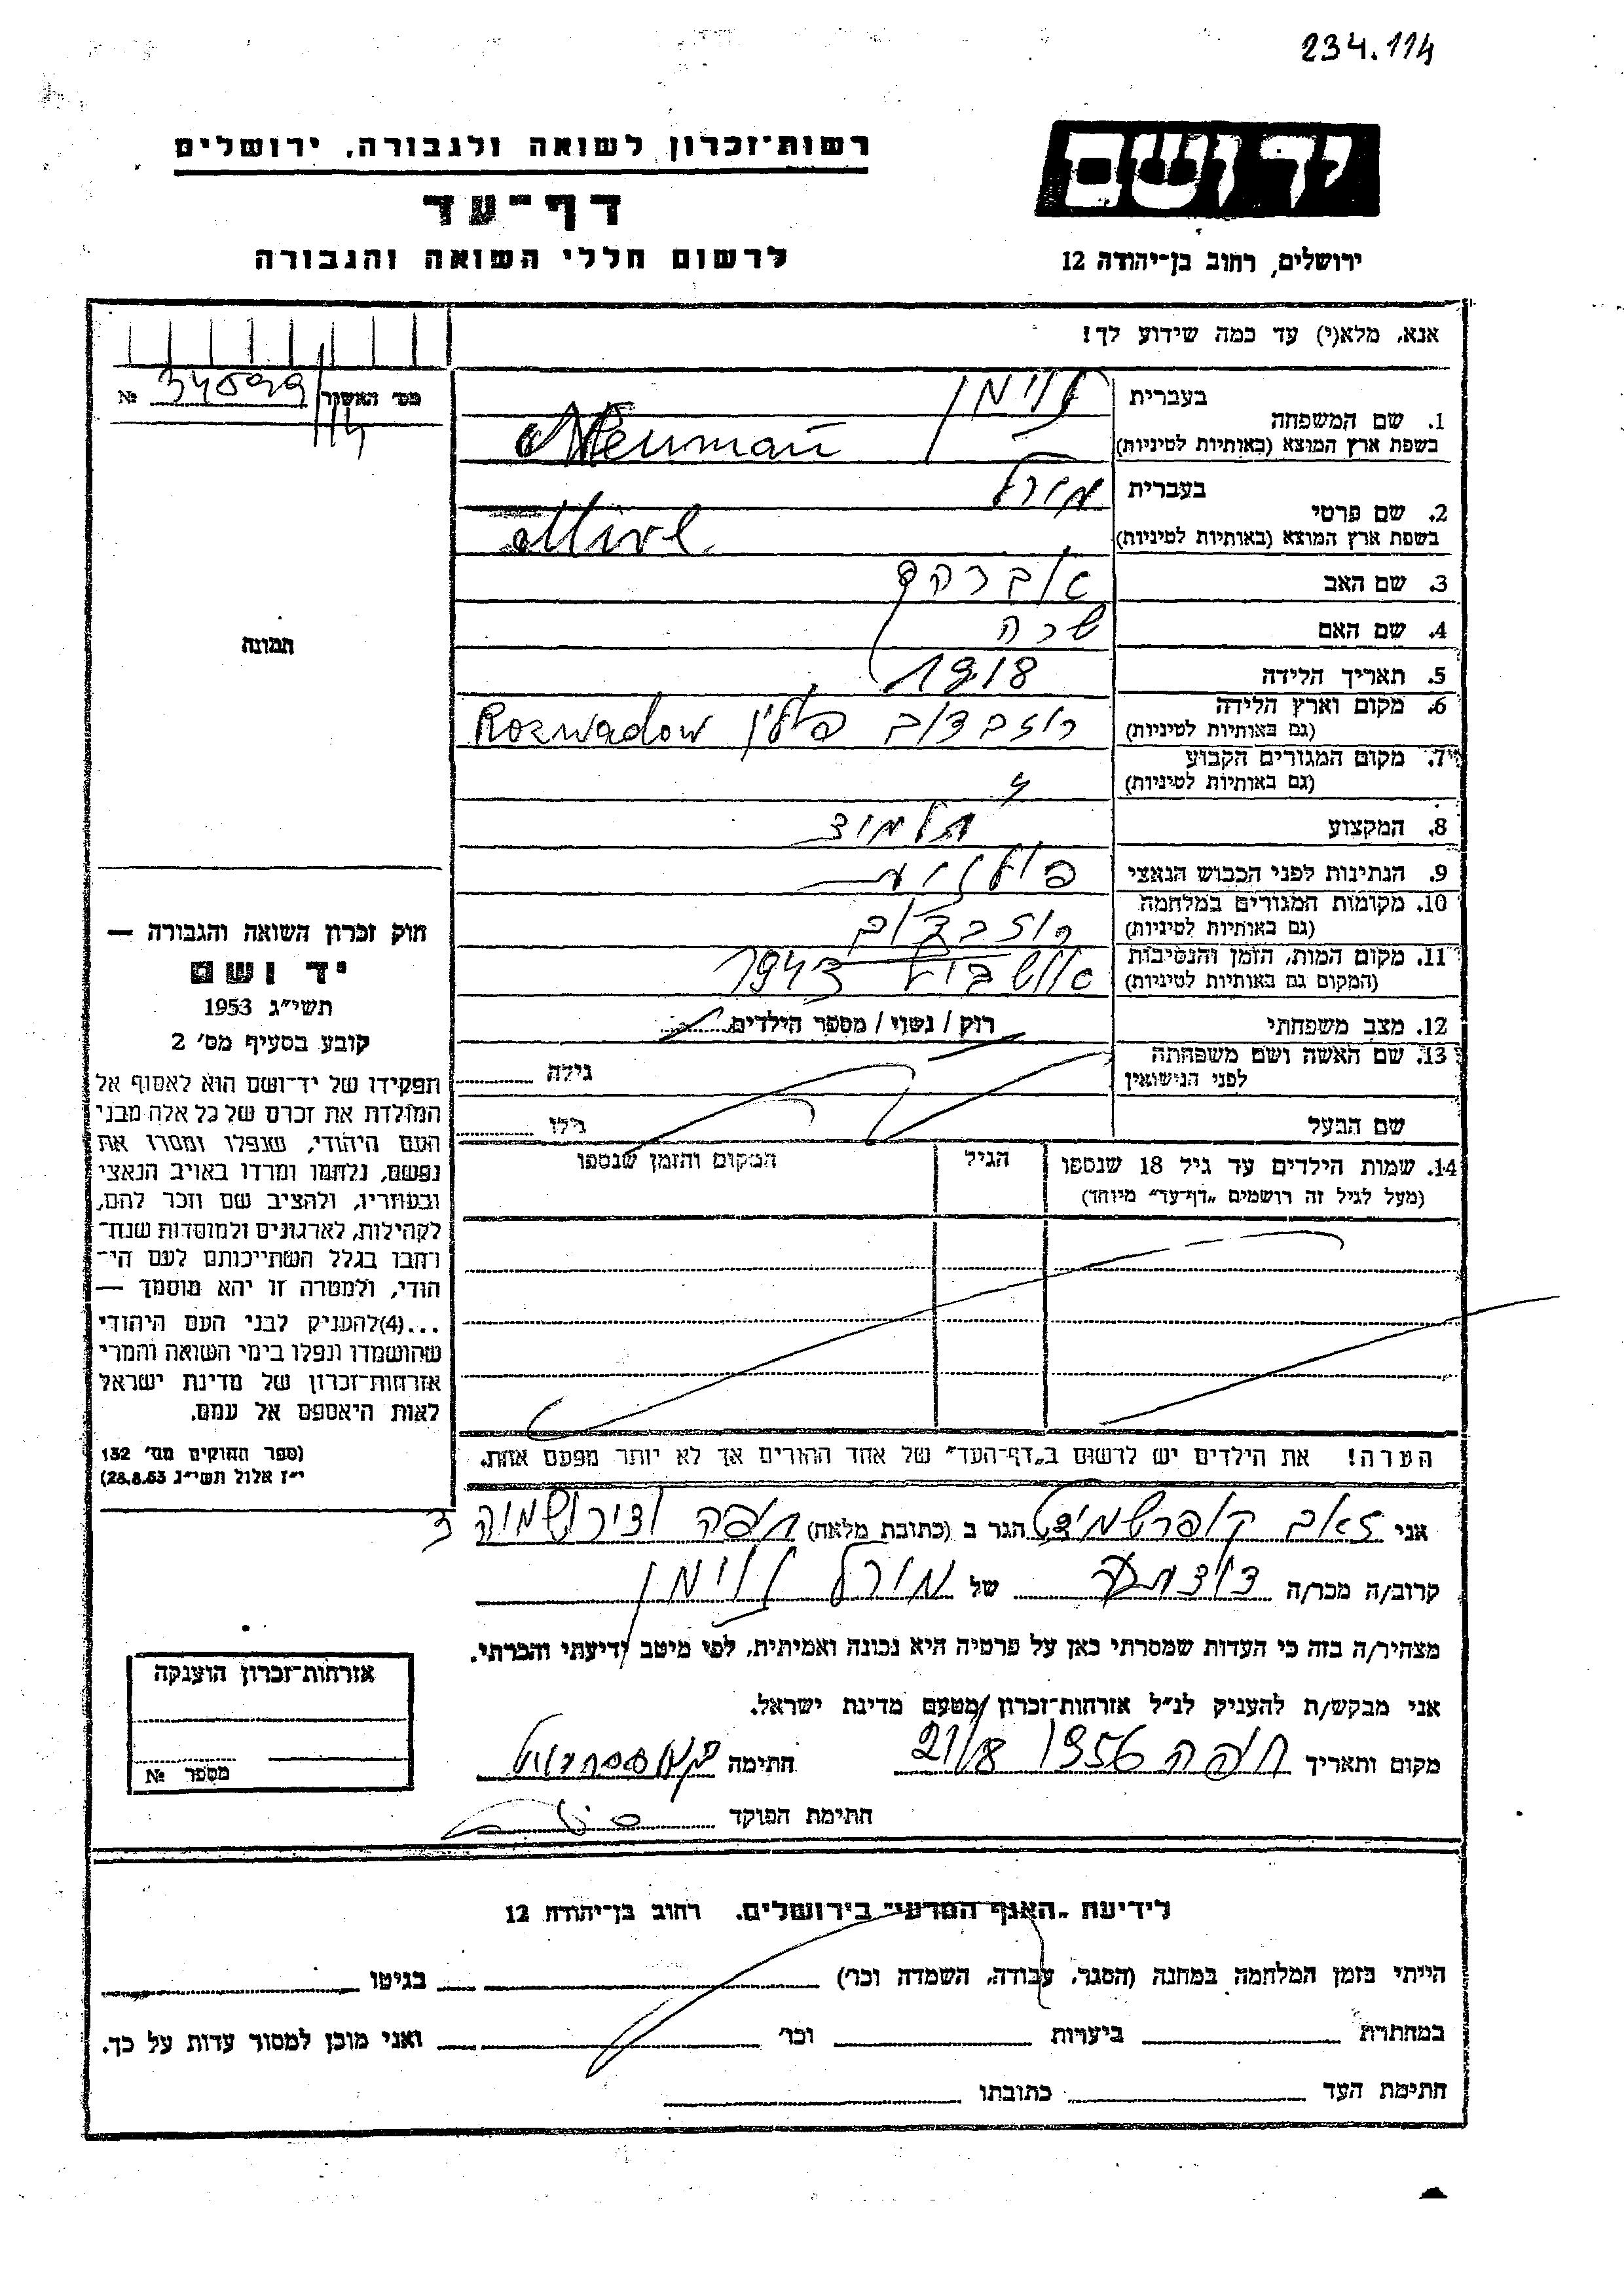 234.114
רשות־זכרון לשואה ולגבורה, ירושלים
יד ושם
דף־עד
לרשום חללי השואה והגבורה
ירושלים, רחוב בן־יהודה 12
אנא, מלא(י) עד כמה שידוע לך!
מס׳ האשור № 34099/114
1. שם המשפחה בעברית נוימן
בשפת ארץ המוצא (באותיות לטיניות) Neuman
2. שם פרטי בעברית מירל
בשפת ארץ המוצא (באותיות לטיניות) Mirl
3. שם האב אברהם
4. שם האם שרה
5. תאריך הלידה 1918
6. מקום וארץ הלידה (גם באותיות לטיניות) רוזבדוב פולין Rozwadow
7. מקום המגורים הקבוע (גם באותיות לטיניות) "
8. המקצוע תלמיד
9. הנתינות לפני הכבוש הנאצי פולנית
10. מקומות המגורים במלחמה (גם באותיות לטיניות) רוזבדוב
11. מקום המות, הזמן והנסיבות (המקום גם באותיות לטיניות) 1943
12. מצב משפחתי רוק / נשוי / מספר הילדים
13. שם האשה ושם משפחתה לפני הנישואין גילה
שם הבעל גילו
14. שמות הילדים עד גיל 18 שנספו הגיל המקום והזמן שנספו
(מעל לגיל זה רושמים „דף־עד״ מיוחד)
הערה! את הילדים יש לרשום ב„דף־העד״ של אחד ההורים אך לא יותר מפעם אחת.
תמונה
חוק זכרון השואה והגבורה —
יד ושם
תשי״ג 1953
קובע בסעיף מס׳ 2
תפקידו של יד־ושם הוא לאסוף אל
המולדת את זכרם של כל אלה מבני
העם היהודי, שנפלו ומסרו את
נפשם, נלחמו ומרדו באויב הנאצי
ובעוזריו, ולהציב שם וזכר להם,
לקהילות, לארגונים ולמוסדות שנח־
רבו בגלל השתייכותם לעם הי־
הודי, ולמטרה זו יהא מוסמך —
...(4) להעניק לבני העם היהודי
שהושמדו ונפלו בימי השואה והמרי
אזרחות־זכרון של מדינת ישראל
לאות היאספם אל עמם.
(ספר החוקים מס׳ 132
י״ז אלול תשי״ג 28.8.53)
אני זאב קופרשמידט הגר ב (כתובת מלאה) חיפה
קרוב/ה מכר/ה של מירל נוימן
מצהיר/ה בזה כי העדות שמסרתי כאן על פרטיה היא נכונה ואמיתית, לפי מיטב ידיעתי והכרתי.
אני מבקש/ת להעניק לנ״ל אזרחות־זכרון מטעם מדינת ישראל.
מקום ותאריך חיפה 21/8 1956 חתימה
חתימת הפוקד
אזרחות־זכרון הוענקה
מספר №
לידיעת „האגף המדעי״ בירושלים. רחוב בן־יהודה 12
הייתי בזמן המלחמה במחנה (הסגר, עבודה, השמדה וכר׳) בגיטו
במחתרת ביערות וכר׳ ואני מוכן למסור עדות על כך.
חתימת העד כתובתו